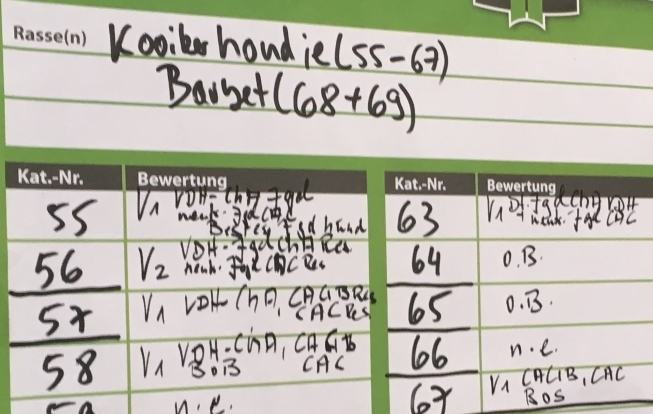 Rasse(n) Kooikerhondje (55-67)
Barbet (68+69)
Kat.-Nr. Bewertung
55 V1 VDH-ChA Jgd
neuk. Jgd CAC
Bester Jgd hund
56 V2 VDH-Jgd ChA Res
neuk. Jgd CAC Res
57 V1 VDH-ChA, CACIB Res
CAC Res
58 V1 VDH-ChA, CACIB
BOB CAC
n.e.
Kat.-Nr. Bewertung
63 V1 Dt. Jgd ChA VDH
neuk. Jgd CAC
64 O.B.
65 O.B.
66 n.e.
67 V1 CACIB, CAC
BOS